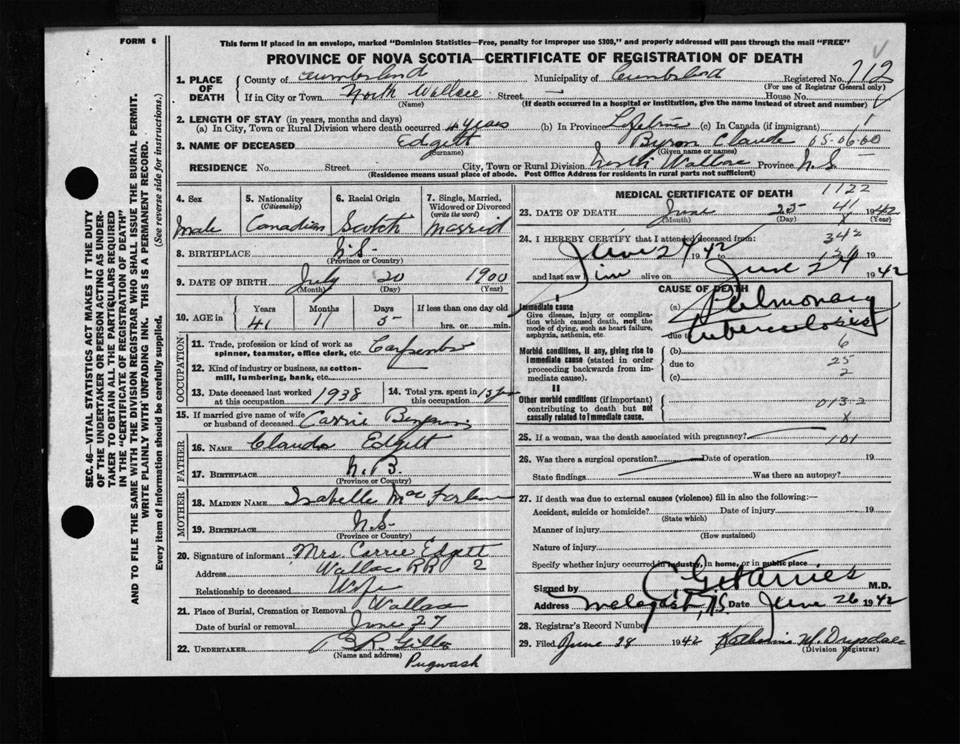 FORM 6
This form if placed in an envelope, marked "Dominion Statistics—Free, penalty for improper use $300," and properly addressed will pass through the mail "FREE"
PROVINCE OF NOVA SCOTIA—CERTIFICATE OF REGISTRATION OF DEATH
1. PLACE OF DEATH
County of Cumberland Municipality of Cumberland Registered No. 712
(For use of Registrar General only)
If in City or Town North Wallace Street — House No.
(Name) (If death occurred in a hospital or institution, give the name instead of street and number)
2. LENGTH OF STAY (in years, months and days)
(a) In City, Town or Rural Division where death occurred 4 years (b) In Province Lifetime (c) In Canada (if immigrant)
3. NAME OF DECEASED Edgett Byron Claude 05-06-00
(Surname) (Given name or names)
RESIDENCE No. Street City, Town or Rural Division North Wallace Province N.S-
(Residence means usual place of abode. Post Office Address for residents in rural parts not sufficient)
4. Sex Male
5. Nationality (Citizenship) Canadian
6. Racial Origin Scotch
7. Single, Married, Widowed or Divorced (write the word) Married
8. BIRTHPLACE N.S-
(Province or Country)
9. DATE OF BIRTH July 20 1900
(Month) (Day) (Year)
10. AGE in Years 41 Months 11 Days 5- If less than one day old hrs. or min.
OCCUPATION
11. Trade, profession or kind of work as spinner, teamster, office clerk, etc. Carpenter
12. Kind of industry or business, as cotton-mill, lumbering, bank, etc.
13. Date deceased last worked at this occupation 1938
14. Total yrs. spent in this occupation
15. If married give name of wife or husband of deceased Carrie
FATHER
16. NAME Claude Edgett
17. BIRTHPLACE N.B.
(Province or Country)
MOTHER
18. MAIDEN NAME Isabelle MacFarlane
19. BIRTHPLACE N.S-
(Province or Country)
20. Signature of informant Mrs. Carrie Edgett
Address Wallace RR 2
Relationship to deceased Wife
21. Place of Burial, Cremation or Removal Wallace
Date of burial or removal June 27
22. UNDERTAKER
(Name and address) Pugwash
MEDICAL CERTIFICATE OF DEATH 1122
23. DATE OF DEATH June 25- 1942
(Month) (Day) (Year)
41
X
24. I HEREBY CERTIFY that I attended deceased from:
June 27 1942 to 19
342
and last saw him alive on June 24 1942
CAUSE OF DEATH
I
Immediate cause
Give disease, injury or complication which caused death, not the mode of dying, such as heart failure, asphyxia, asthenia, etc.
(a) Pulmonary tuberculosis
due to
Morbid conditions, if any, giving rise to immediate cause (stated in order proceeding backwards from immediate cause).
(b) 6
due to 25
(c) 2
II
Other morbid conditions (if important) contributing to death but not causally related to immediate cause.
013-2
X
25. If a woman, was the death associated with pregnancy? 101
26. Was there a surgical operation? Date of operation 19
State findings Was there an autopsy?
27. If death was due to external causes (violence) fill in also the following:—
Accident, suicide or homicide? Date of injury 19
(State which)
Manner of injury
(How sustained)
Nature of injury
Specify whether injury occurred in industry, in home, or in public place
Signed by M.D.
Address N.S Date June 26 1942
28. Registrar's Record Number
29. Filed June 28 1942 Katharine M. Drysdale
(Division Registrar)
SEC. 46—VITAL STATISTICS ACT MAKES IT THE DUTY
OF THE UNDERTAKER OR PERSON ACTING AS UNDER-
TAKER TO OBTAIN ALL THE PARTICULARS REQUIRED
IN THE "CERTIFICATE OF REGISTRATION OF DEATH"
AND TO FILE THE SAME WITH THE DIVISION REGISTRAR WHO SHALL ISSUE THE BURIAL PERMIT.
WRITE PLAINLY WITH UNFADING INK. THIS IS A PERMANENT RECORD.
Every item of information should be carefully supplied. (See reverse side for instructions.)